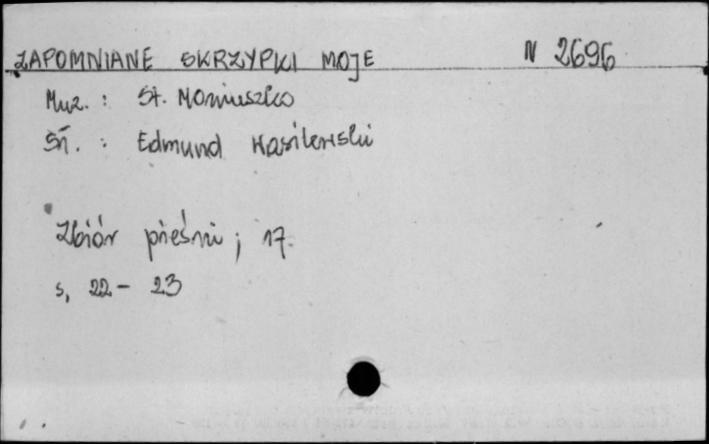 ZAPOMNIANE SKRZYPKI MOJE N 2696
Muz. : St. Moniuszko
Sł. : Edmund Wasilewski
Zbiór pieśni ; 17.
s, 22 - 23